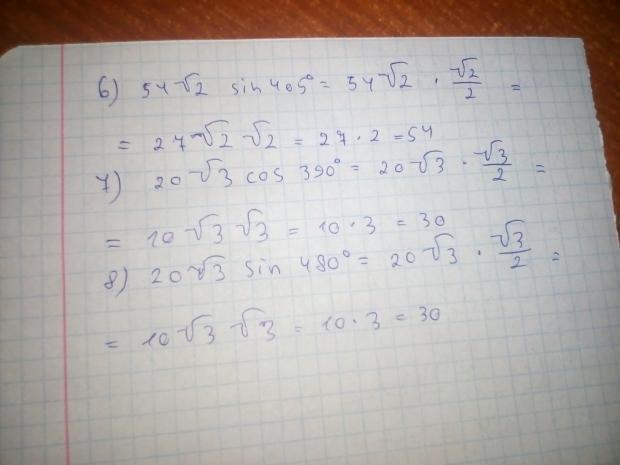 6) 54√2 sin 405° = 54√2 · √2/2 =
= 27√2 √2 = 27 · 2 = 54
7) 20√3 cos 390° = 20√3 · √3/2 =
= 10√3 √3 = 10 · 3 = 30
8) 20√3 sin 480° = 20√3 · √3/2 =
= 10√3 √3 = 10 · 3 = 30